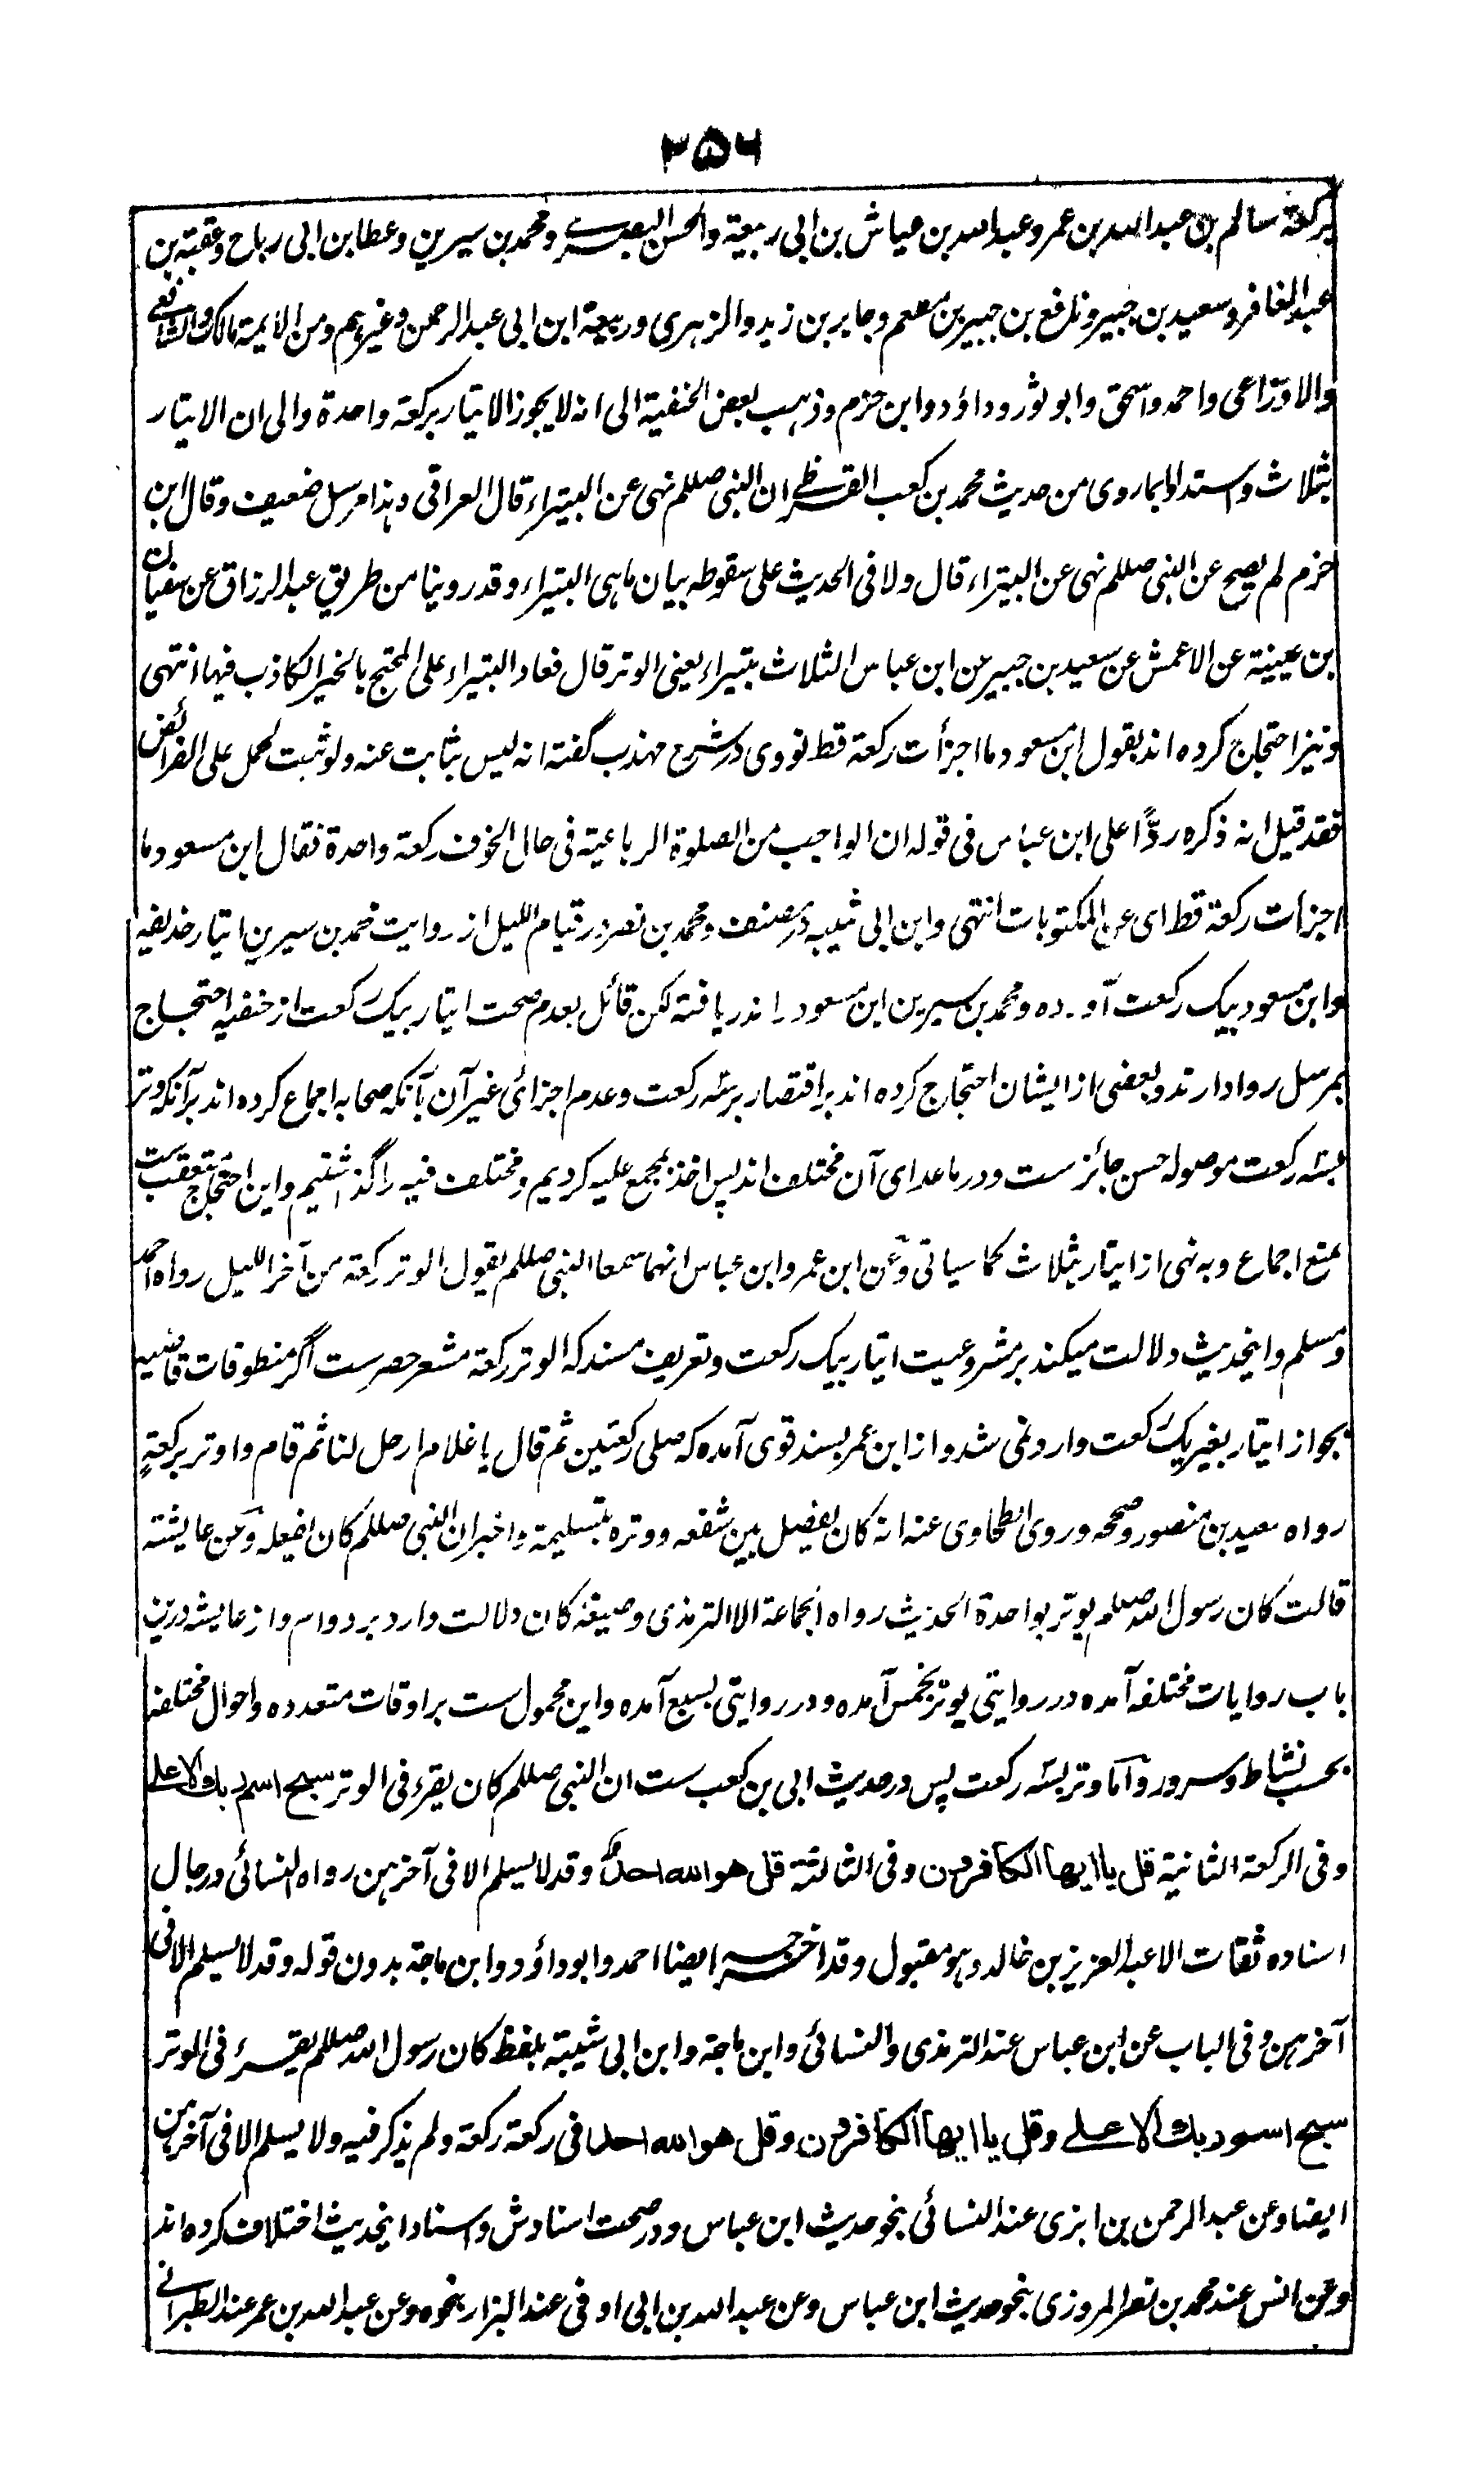 ۳۵۶
برکعة سالم بن عبدالله بن عمر وعبدالله بن عیاش بن ابی ربیعة والحسن البصری ومحمد بن سیرین وعطا بن ابی رباح وعقبة بن
عبدالغافر وسعید بن جبیر ونافع بن جبیر بن مطعم وجابر بن زید والزهری وربیعة ابن ابی عبدالرحمن وغیرهم ومن الایمة مالک والشافعی
والاوزاعی واحمد واسحق وابو ثور وداؤد وابن حزم وذهب بعض الحنفیة الی انه لا یجوز الایتار برکعة واحدة والی ان الایتار
بثلاث واستدلوا بماروی من حدیث محمد بن کعب القرظی ان النبی صللم نهی عن البتیراء قال العراقی وهذا مرسل ضعیف وقال ابن
حزم لم یصح عن النبی صللم نهی عن البتیراء قال ولا فی الحدیث علی سقوطه بیان ماهی البتیراء وقد روینا من طریق عبدالرزاق عن سفیان
بن عیینة عن الاعمش عن سعید بن جبیر عن ابن عباس الثلاث بتیراء یعنی الوتر قال فعاد البتیراء علی المحتج بالخبر الکاذب فیها انتهی
ونیز احتجاج کرده اند بقول ابن مسعود ما اجزأت رکعة قط نووی در شرح مهذب گفته انه لیس بثابت عنه ولو ثبت لحمل علی الفرائض
فقد قیل انه ذکره ردًّا علی ابن عباس فی قوله ان الواجب من الصلوة الرباعیة فی حال الخوف رکعة واحدة فقال ابن مسعود ما
اجزأت رکعة قط ای عن المکتوبات انتهی وابن ابی شیبه در مصنف ومحمد بن نصر در قیام اللیل از روایت محمد بن سیرین ایتار حذیفه
وابن مسعود بیک رکعت آورده ومحمد بن سیرین ابن مسعود را ندریافته لکن قائل بعدم صحت ایتار بیک رکعت از حنفیه احتجاج
بمرسل روا دارند وبعضی از ایشان احتجاج کرده اند بر اقتصار بر سه رکعت وعدم اجزائی غیر آن بآنکه صحابه اجماع کرده اند برآنکه وتر
بسه رکعت موصوله حسن جائز ست ودر ماعدای آن مختلف اند پس اخذ بمجمع علیه کردیم ومختلف فیه را گذاشتیم واین احتجاج متعقب ست
بمنع اجماع وبه نهی از ایتار بثلاث کما سیاتی وعن ابن عمر وابن عباس انهما سمعا النبی صللم یقول الوتر رکعة من آخر اللیل رواه احمد
ومسلم واینحدیث دلالت میکند بر مشروعیت ایتار بیک رکعت وتعریف مسند که الوتر رکعة مشعر حصرست اگر منطوقات قاضیه
بجواز ایتار بغیر یک رکعت وارد نمی شد واز ابن عمر بسند قوی آمده که صلی رکعتین ثم قال یا غلام ارحل لنا ثم قام واوتر برکعةٍ
رواه سعید بن منصور وصححه وروی الطحاوی عنه انه کان یفصل بین شفعه ووتره بتسلیمة واخبر ان النبی صللم کان یفعله وعن عایشه
قالت کان رسول الله صللم یوتر بواحدة الحدیث رواه الجماعة الا الترمذی وصیغه کان دلالت دارد بر دوام واز عایشه درین
باب روایات مختلفه آمده در روایتی یوتر بخمس آمده ودر روایتی بسبع آمده واین محمول ست بر اوقات متعدده واحوال مختلفه
بحسب نشاط وسرور وآما وتر بسه رکعت پس در حدیث ابی بن کعب ست ان النبی صللم کان یقرء فی الوتر سبح اسم ربك الاعلی
وفی الرکعة الثانیة قل یا ایها الکافرون وفی الثالثة قل هو الله احدٌ وقد لا یسلم الا فی آخرهن رواه النسائی ورجال
اسناده ثقات الا عبدالعزیز بن خالد وهو مقبول وقد اخرجه ایضا احمد وابوداؤد وابن ماجة بدون قوله وقد لا یسلم الا فی
آخرهن وفی الباب عن ابن عباس عند الترمذی والنسائی وابن ماجة وابن ابی شیبة بلفظ کان رسول الله صللم یقرء فی الوتر
سبح اسم ربك الاعلی وقل یا ایها الکافرون وقل هو الله احد فی رکعة رکعة ولم یذکر فیه ولا یسلم الا فی آخرهن
ایضا وعن عبدالرحمن بن ابزی عند النسائی بنحو حدیث ابن عباس ودر صحت اسنادش واسناد اینحدیث اختلاف کرده اند
وعن انس عند محمد بن نصر المروزی بنحو حدیث ابن عباس وعن عبدالله بن ابی اوفی عند البزار بنحوه وعن عبدالله بن عمر عند الطبرانی